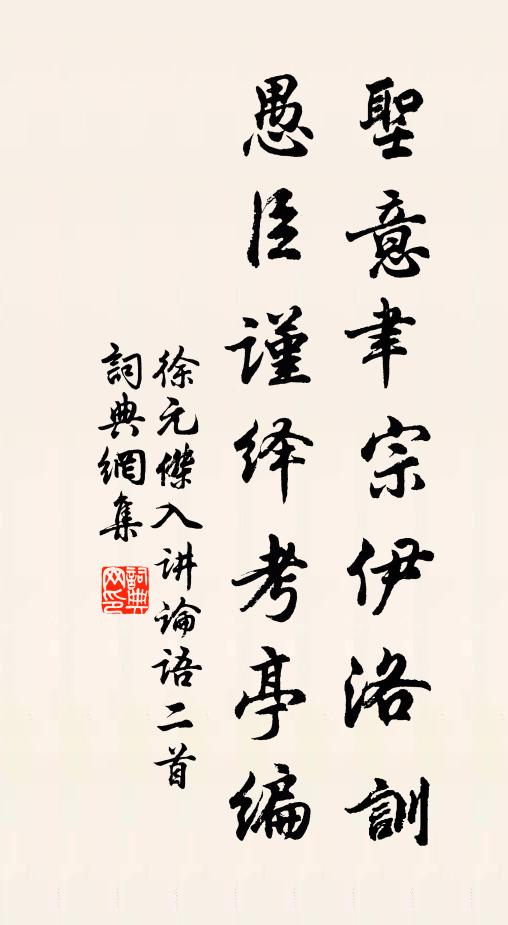 聖意聿宗伊洛訓
愚臣謹绎考亭编
徐元傑入讲論语二首
詞典網集
詞典网印